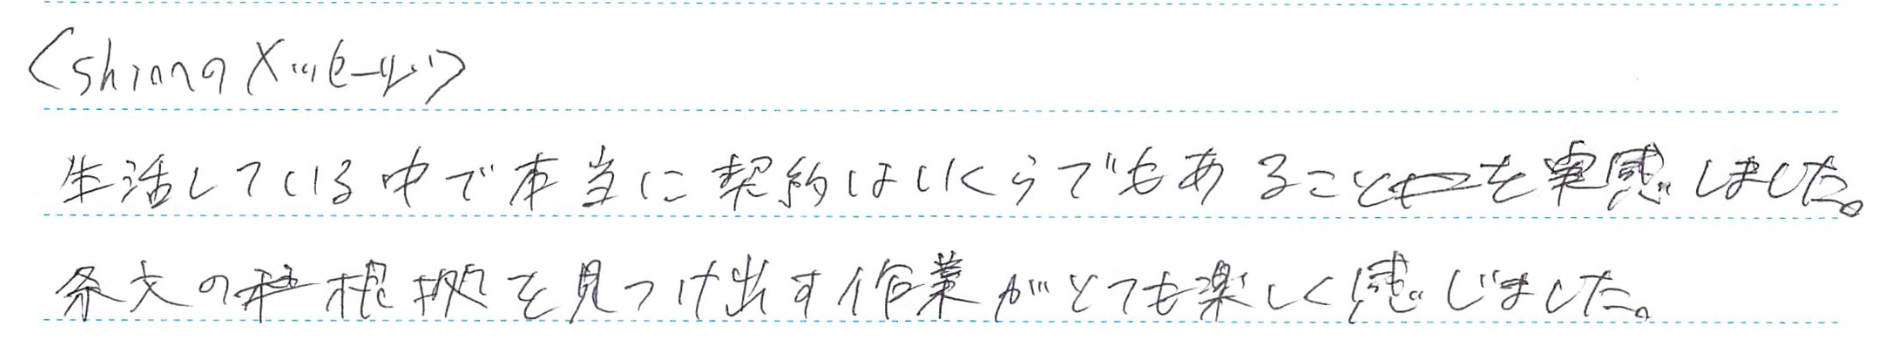 <shinnaメッセージ>
生活している中で本当に契約はいくらでもあることを実感しました。
条文の根拠を見つけ出す作業がとても楽しく感じました。